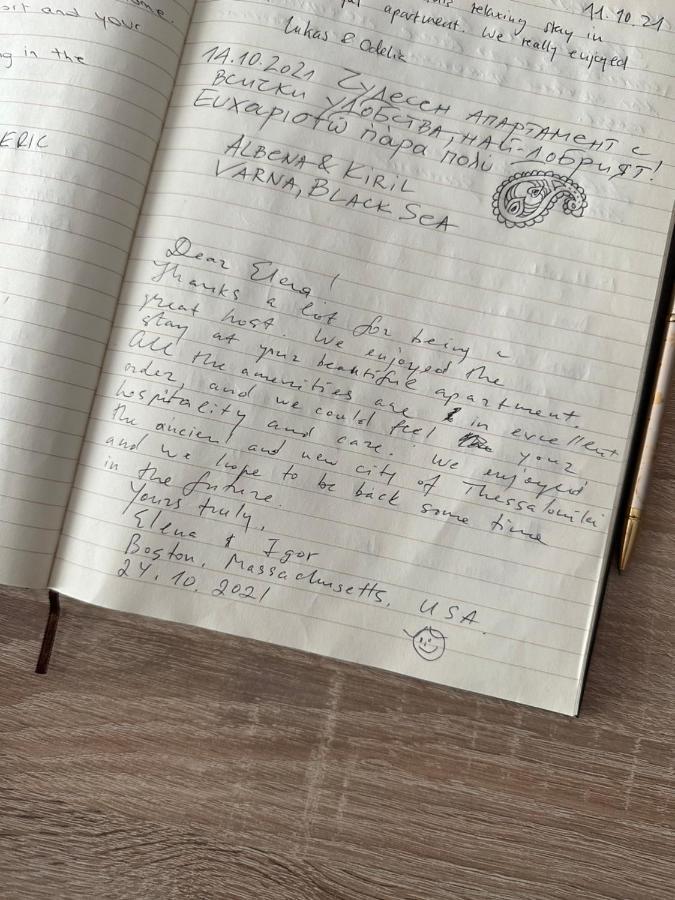 ome.
ort and your
ng in the
ERIC
11.10.21
relaxing stay in
apartment. We really enjoyed
Lukas & Odelie
14.10.2021 Чудесен апартамент с
всички удобства, най-добрият!
Ευχαριστώ πάρα πολύ
ALBENA & KIRIL
VARNA, BLACK SEA
Dear Elena!
Thanks a lot for being a
great host. We enjoyed the
stay at your beautiful apartment.
All the amenities are in excellent
order, and we could feel your
hospitality and care. We enjoyed
the ancient and new city of Thessaloniki
and we hope to be back some time
in the future.
Yours truly,
Elena & Igor
Boston, Massachusetts, USA.
24.10.2021